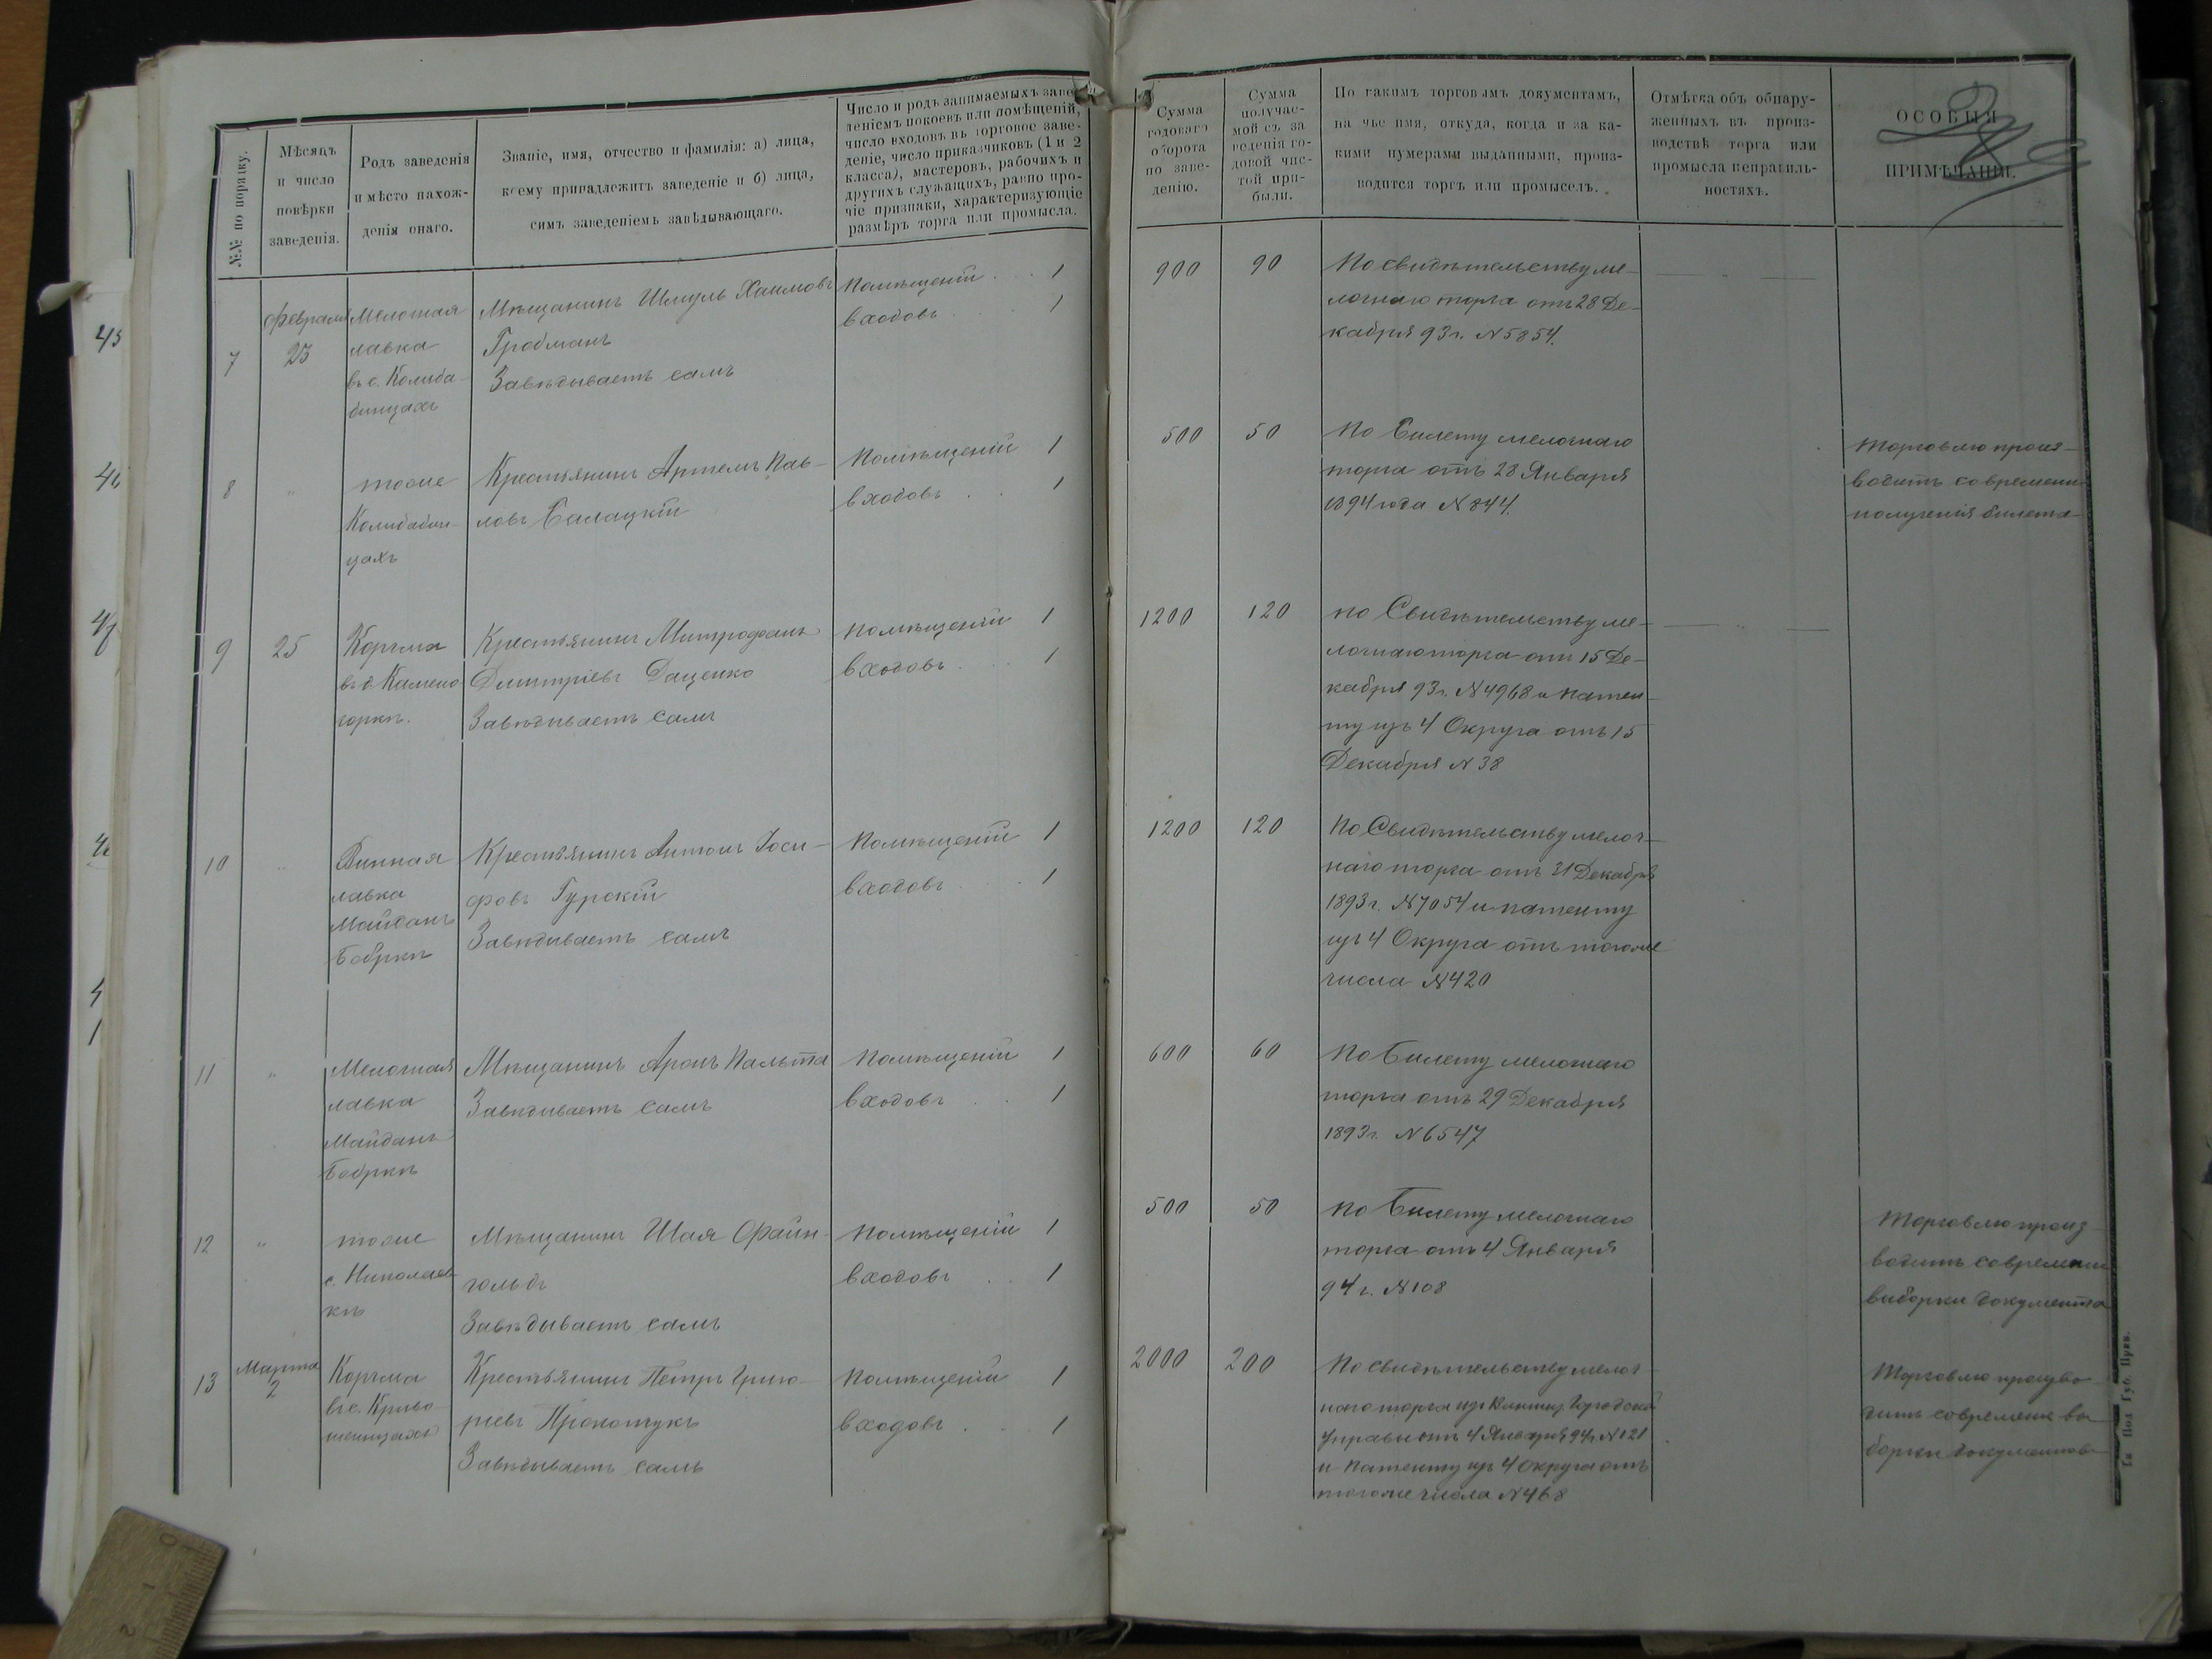 №№ по порядку.
Мѣсяцъ
и число
повѣрки
заведенія.
Родъ заведенія
и мѣсто нахож-
денія онаго.
Званіе, имя, отчество и фамилія: а) лица,
коему принадлежитъ заведеніе и б) лица,
симъ заведеніемъ завѣдывающаго.
Число и родъ занимаемыхъ заве-
деніемъ покоевъ или помѣщеній,
число входовъ въ торговое заве-
деніе, число приказчиковъ (1 и 2
класса), мастеровъ, рабочихъ и
другихъ служащихъ, равно про-
чіе признаки, характеризующіе
размѣръ торга или промысла.
Сумма
годоваго
оборота
по заве-
денію.
Сумма
получае-
мой съ за
веденія го-
довой чис-
той при-
были.
По какимъ торговымъ документамъ,
на чье имя, откуда, когда и за ка-
кими нумерами выданными, произ-
водится торгъ или промыселъ.
Отмѣтка объ обнару-
женныхъ въ произ-
водствѣ торга или
промысла неправиль-
ностяхъ.
ОСОБЫЯ
ПРИМѢЧАНІЯ.
7
Февраля
23
Мелочная
лавка
въ с. Колыба-
бинцахъ
Мѣщанинъ Шмуль Хаимовъ
Гробманъ
Завѣдываетъ самъ
Помѣщеній 1
входовъ 1
900
90
По свидѣтельству ме-
лочнаго торга отъ 28 Де-
кабря 93 г. N 5854.
8
"
тоже
Колыбабин-
цахъ
Крестьянинъ Артемъ Пав-
ловъ Балацкій
Помѣщеній 1
входовъ 1
500
50
По Билету мелочнаго
торга отъ 28 Января
1894 года N 844.
Торговлю произ-
водитъ современи
полученія билета
9
25
Корчма
въ с. Камено
горкѣ.
Крестьянинъ Митрофанъ
Дмитріевъ Даценко
Завѣдываетъ самъ
Помѣщеній 1
входовъ 1
1200
120
по Свидѣтельству ме-
лочнаго торга отъ 15 Де-
кабря 93 г. N 4968 и патен-
ту изъ 4 Округа отъ 15
Декабря N 38
"
10
"
Винная
лавка
Майданъ
Бобркѣ
Крестьянинъ Антонъ Іоси-
фовъ Гурскій
Завѣдываетъ самъ
Помѣщеній 1
входовъ 1
1200
120
По Свидѣтельству мелоч-
наго торга отъ 31 Декабря
1893 г. N 7054 и патенту
изъ 4 Округа отъ тогоже
числа N 420
11
"
Мелочная
лавка
Майданъ
Бобркѣ
Мѣщанинъ Аронъ Пальта
Завѣдываетъ самъ
Помѣщеній 1
входовъ 1
600
60
По Билету мелочнаго
торга отъ 29 Декабря
1893 г. N 6547
12
"
тоже
с. Николаев-
кѣ
Мѣщанинъ Шая Файн-
гольдъ
Завѣдываетъ самъ
Помѣщеній 1
входовъ 1
500
50
по Билету мелочнаго
торга отъ 4 Января
94 г. N 108
Торговлю произ-
водитъ современи
выборки документа
13
Марта
2
Корчма
въ с. Криво
шеинцахъ
Крестьянинъ Петръ Григо-
рьевъ Прокопчукъ
Завѣдываетъ самъ
Помѣщеній 1
входовъ 1
2000
200
По свидѣтельству мелоч-
наго торга изъ Винниц. Городской
Управы отъ 4 Января 94 г. N 121
и патенту изъ 4 Округа отъ
тогоже числа N 468
Торговлю произво-
дитъ современи вы
борки документовъ
Ти. Под. Губ. Прав.